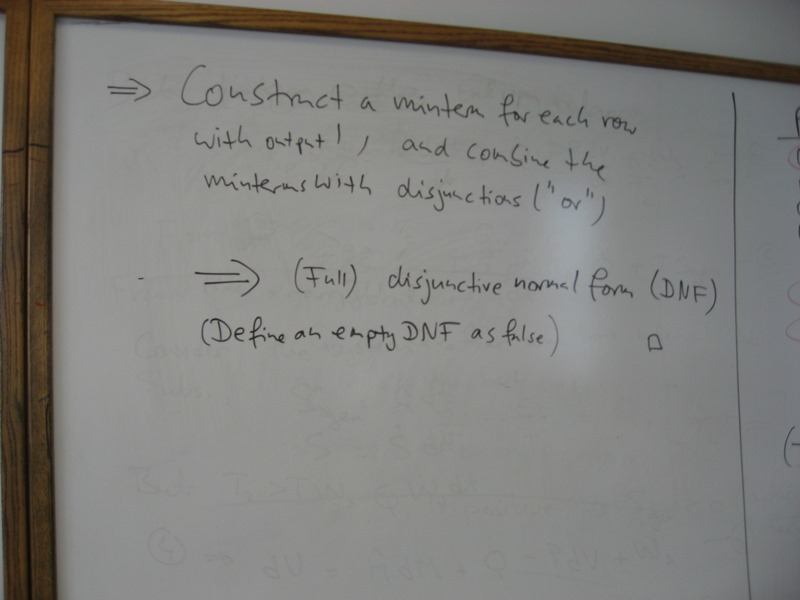 ⇒ Construct a minterm for each row
with output 1, and combine the
minterms with disjunctions ("or")
⇒ (Full) disjunctive normal form (DNF)
(Define an empty DNF as false) □